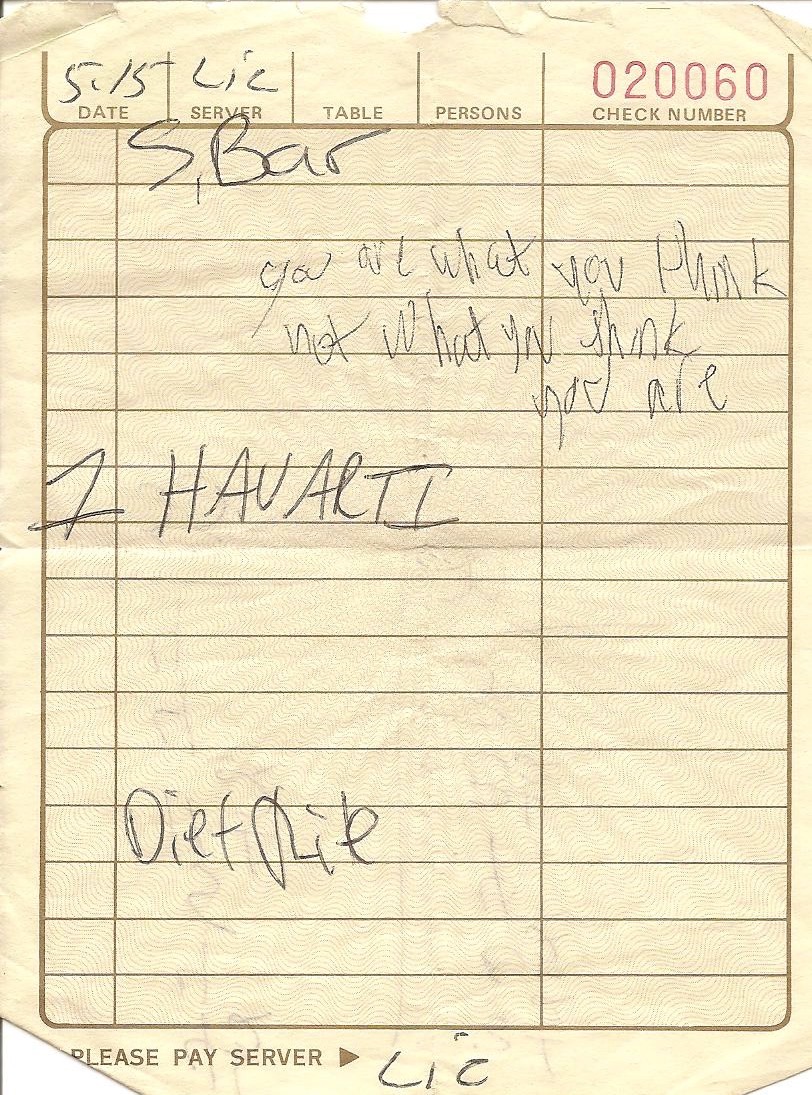 5.15 Lic 020060
DATE SERVER TABLE PERSONS CHECK NUMBER
S, Bar
you are what you think
not what you think
you are
1 HAVARTI
Diet Rite
PLEASE PAY SERVER ▶ Lic